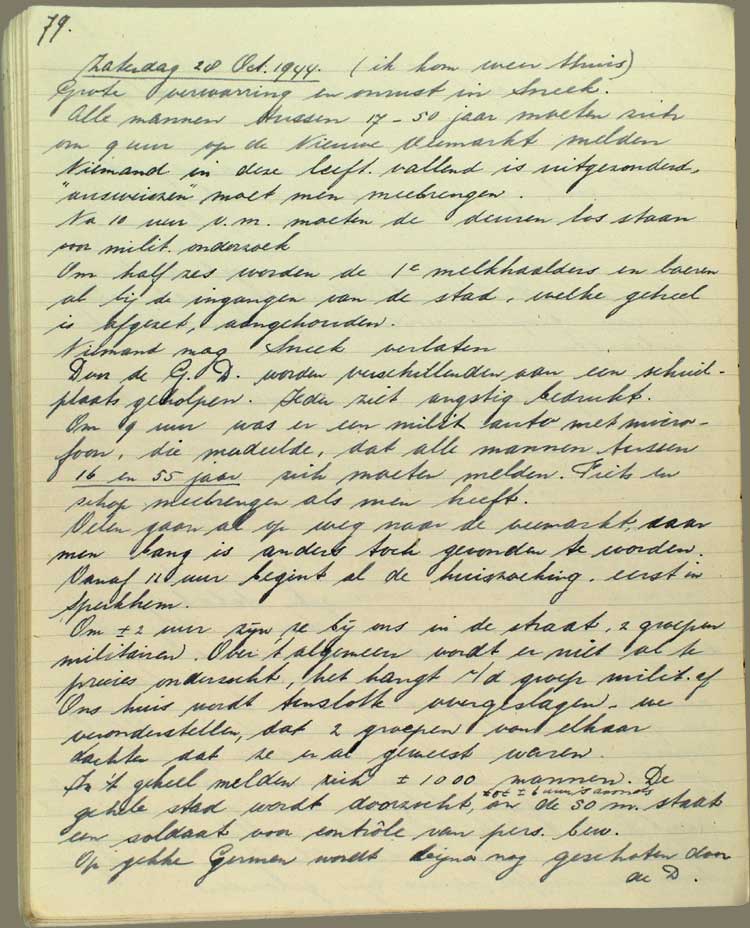 79.
Zaterdag 28 Oct. 1944. (ik kom weer thuis)
Grote verwarring en onrust in Sneek.
Alle mannen tussen 17-50 jaar moeten zich
om 9 uur op de Nieuwe Veemarkt melden
Niemand in deze leeft. vallend is uitgezonderd,
"ausweiszen" moet men meebrengen.
Na 10 uur v.m. moeten de deuren los staan
voor milit. onderzoek
Om half zes worden de 1e melkhaalders en boeren
al bij de ingangen van de stad, welke geheel
is afgezet, aangehouden.
Niemand mag Sneek verlaten
Door de G. D. worden verschillenden aan een schuil-
plaats geholpen. Ieder ziet angstig bedrukt.
Om 9 uur was er een milit auto met micro-
foon, die mededeelde, dat alle mannen tussen
16 en 55 jaar zich moeten melden. Fiets en
schop meebrengen als men heeft.
Velen gaan al op weg naar de veemarkt, daar
men bang is anders toch gevonden te worden.
Vanaf 11 uur begint al de huiszoeking. eerst in
Sperkhem.
Om ± 2 uur zijn ze bij ons in de straat, 2 groepen
militairen. Over 't algemeen wordt er niet al te
precies onderzocht, het hangt v/d groep milit. af
Ons huis wordt tenslotte overgeslagen - we
veronderstellen, dat 2 groepen van elkaar
dachten dat ze er al geweest waren.
In 't geheel melden zich ± 1000 mannen. De
gehele stad wordt doorzocht, tot ± 6 uur 's avonds
om de 50 m. staat
een soldaat voor contrôle van pers. bew.
Op gekke Germen wordt bijna nog geschoten door
de D.